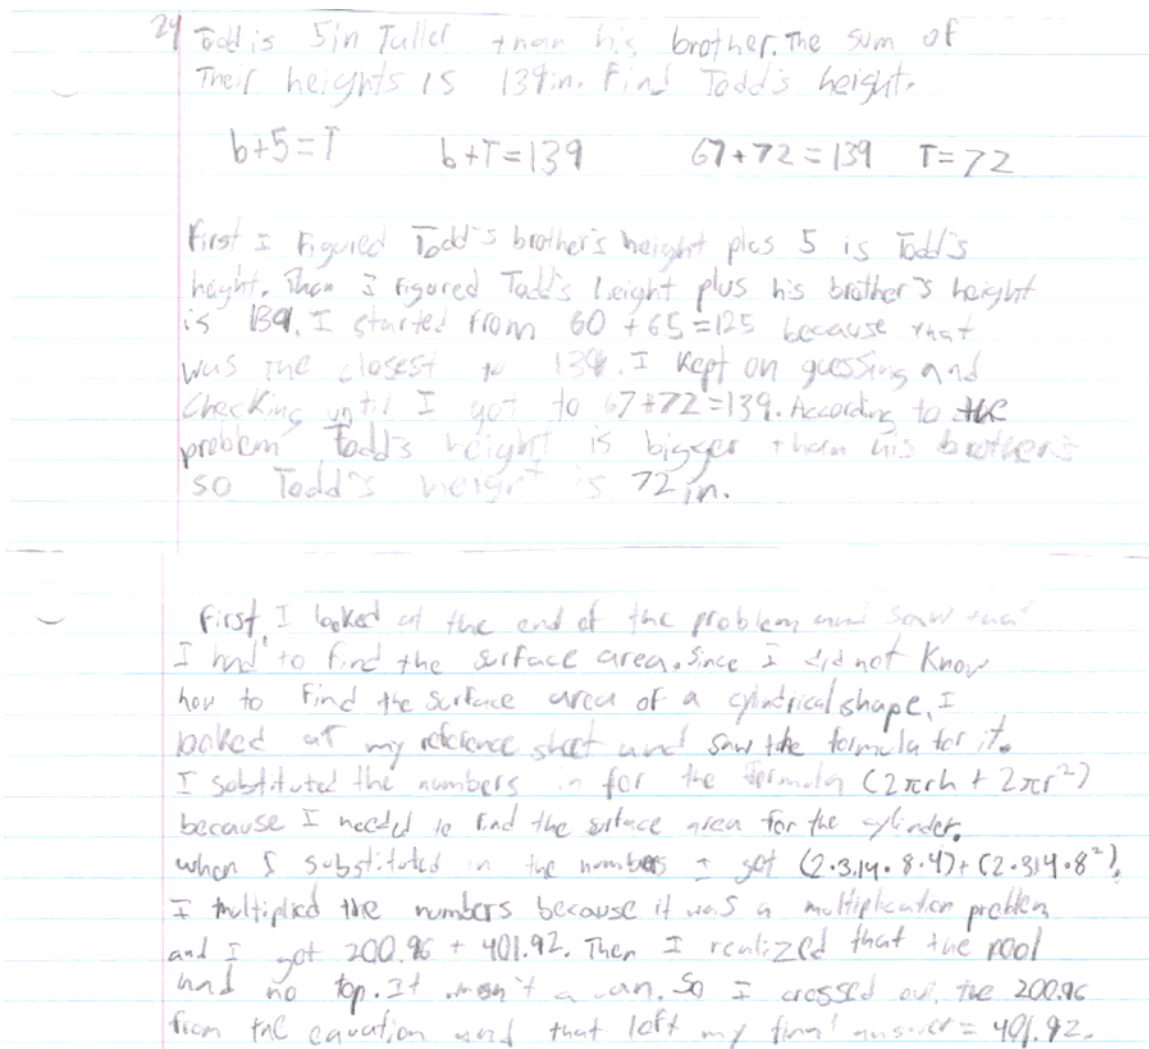 24 Todd is 5in Taller than his brother. The sum of
Their heights is 139in. Find Todd's height.
b+5=T b+T=139 67+72=139 T=72
First I Figured Todd's brother's height plus 5 is Todd's
height. Then I Figured Todd's height plus his brother's height
is 139. I started from 60 +65=125 because that
was the closest to 139. I kept on guessing and
checking until I got to 67+72=139. According to the
problem Todd's height is bigger than his brother's
so Todd's height is 72 in.
First, I looked at the end of the problem and saw that
I had to find the surface area. Since I did not know
how to Find the surface area of a cylindrical shape, I
looked at my reference sheet and saw the formula for it.
I substituted the numbers in for the formula (2πrh + 2πr²)
because I needed to find the surface area for the cylinder.
When I substituted in the numbers I got (2·3.14·8·4)+(2·3.14·8²).
I multiplied the numbers because it was a multiplication problem
and I got 200.96 + 401.92. Then I realized that the pool
had no top. It wasn't a can. So I crossed out the 200.96
from the equation and that left my final answer = 401.92.